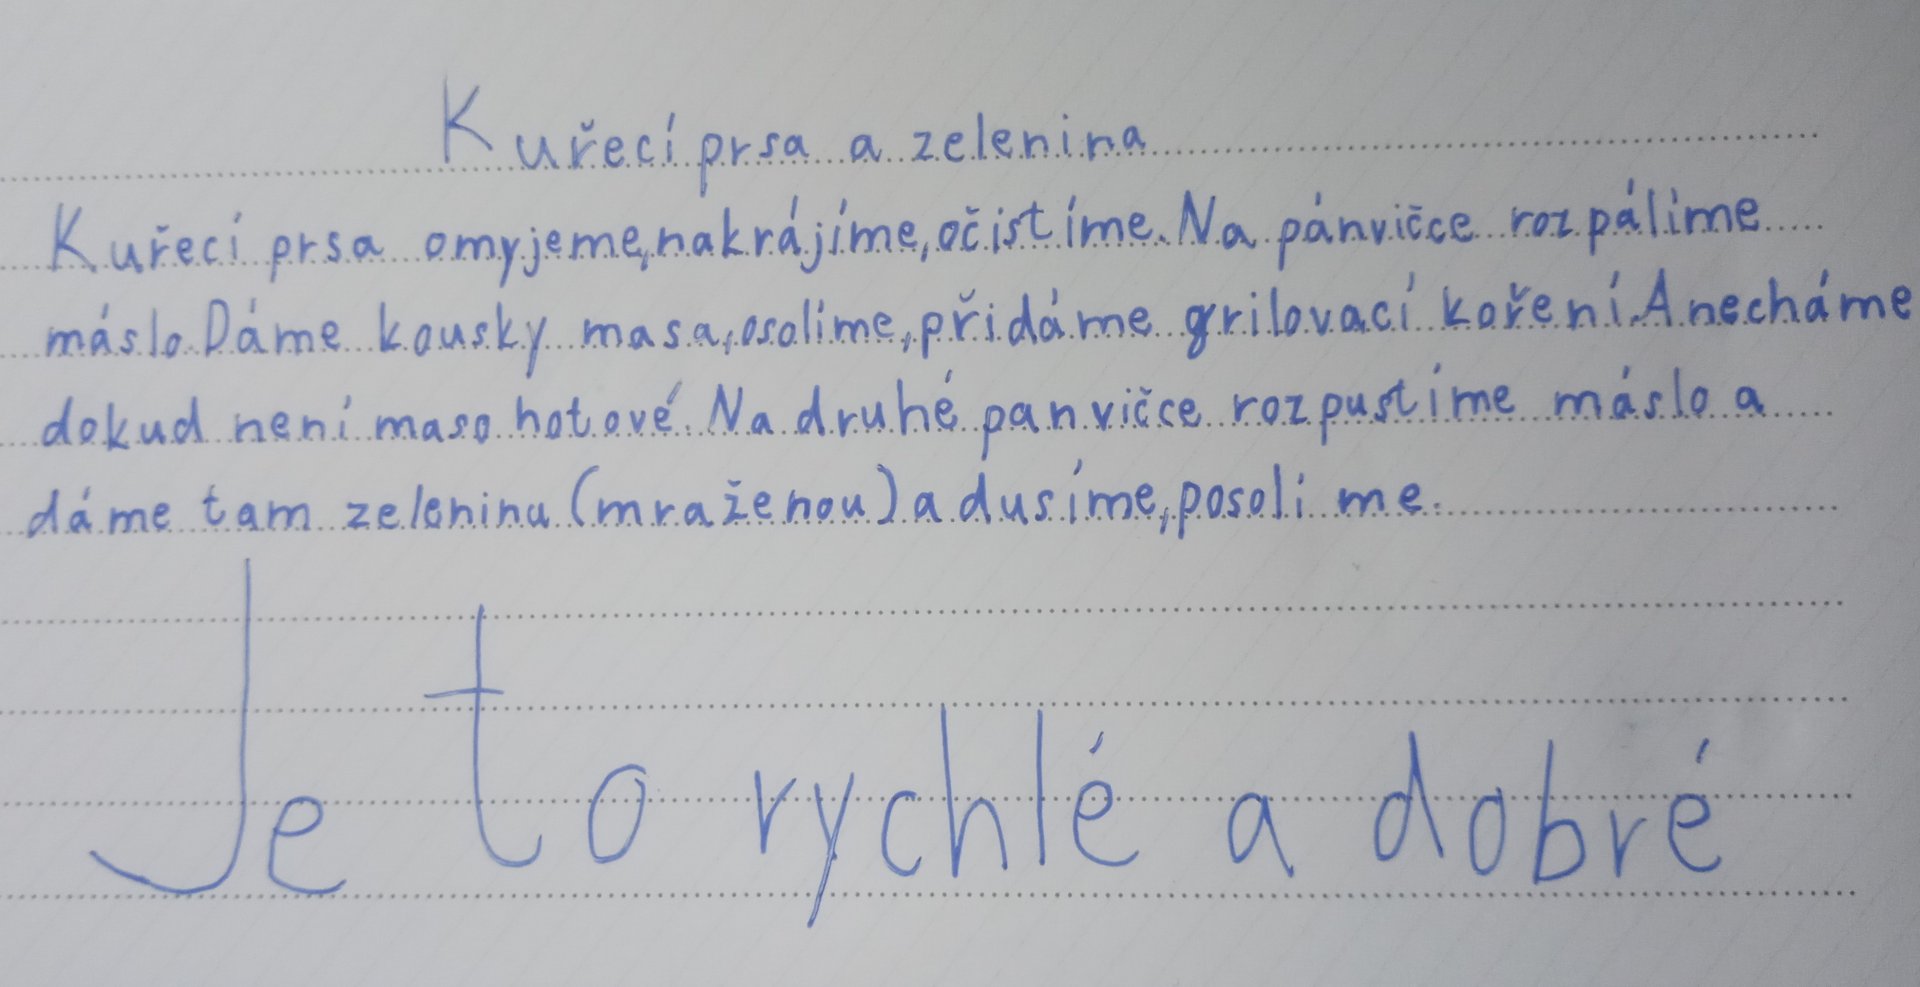 Kuřecí prsa a zelenina
Kuřecí prsa omyjeme,nakrájíme,očistíme.Na pánvičce rozpálíme
máslo.Dáme kousky masa,osolíme,přidáme grilovací koření.A necháme
dokud není maso hotové.Na druhé panvičce rozpustíme máslo a
dáme tam zeleninu (mraženou) a dusíme,posolíme.
Je to rychlé a dobré